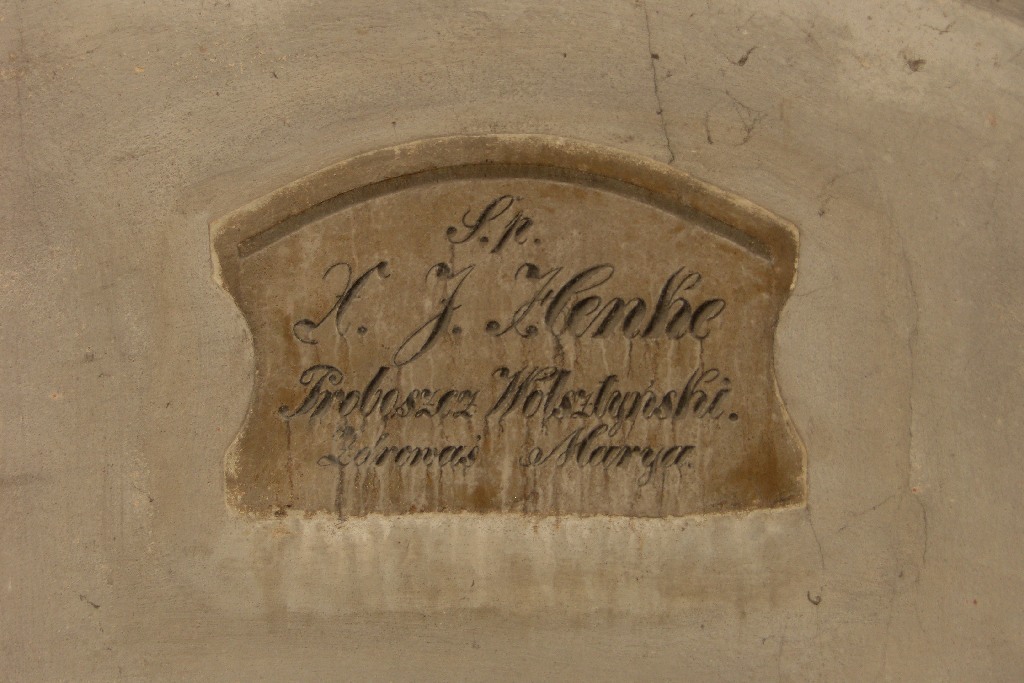 Ś.p.
X. J. Henke
Proboszcz Wolsztyński.
Zdrowaś Marya.